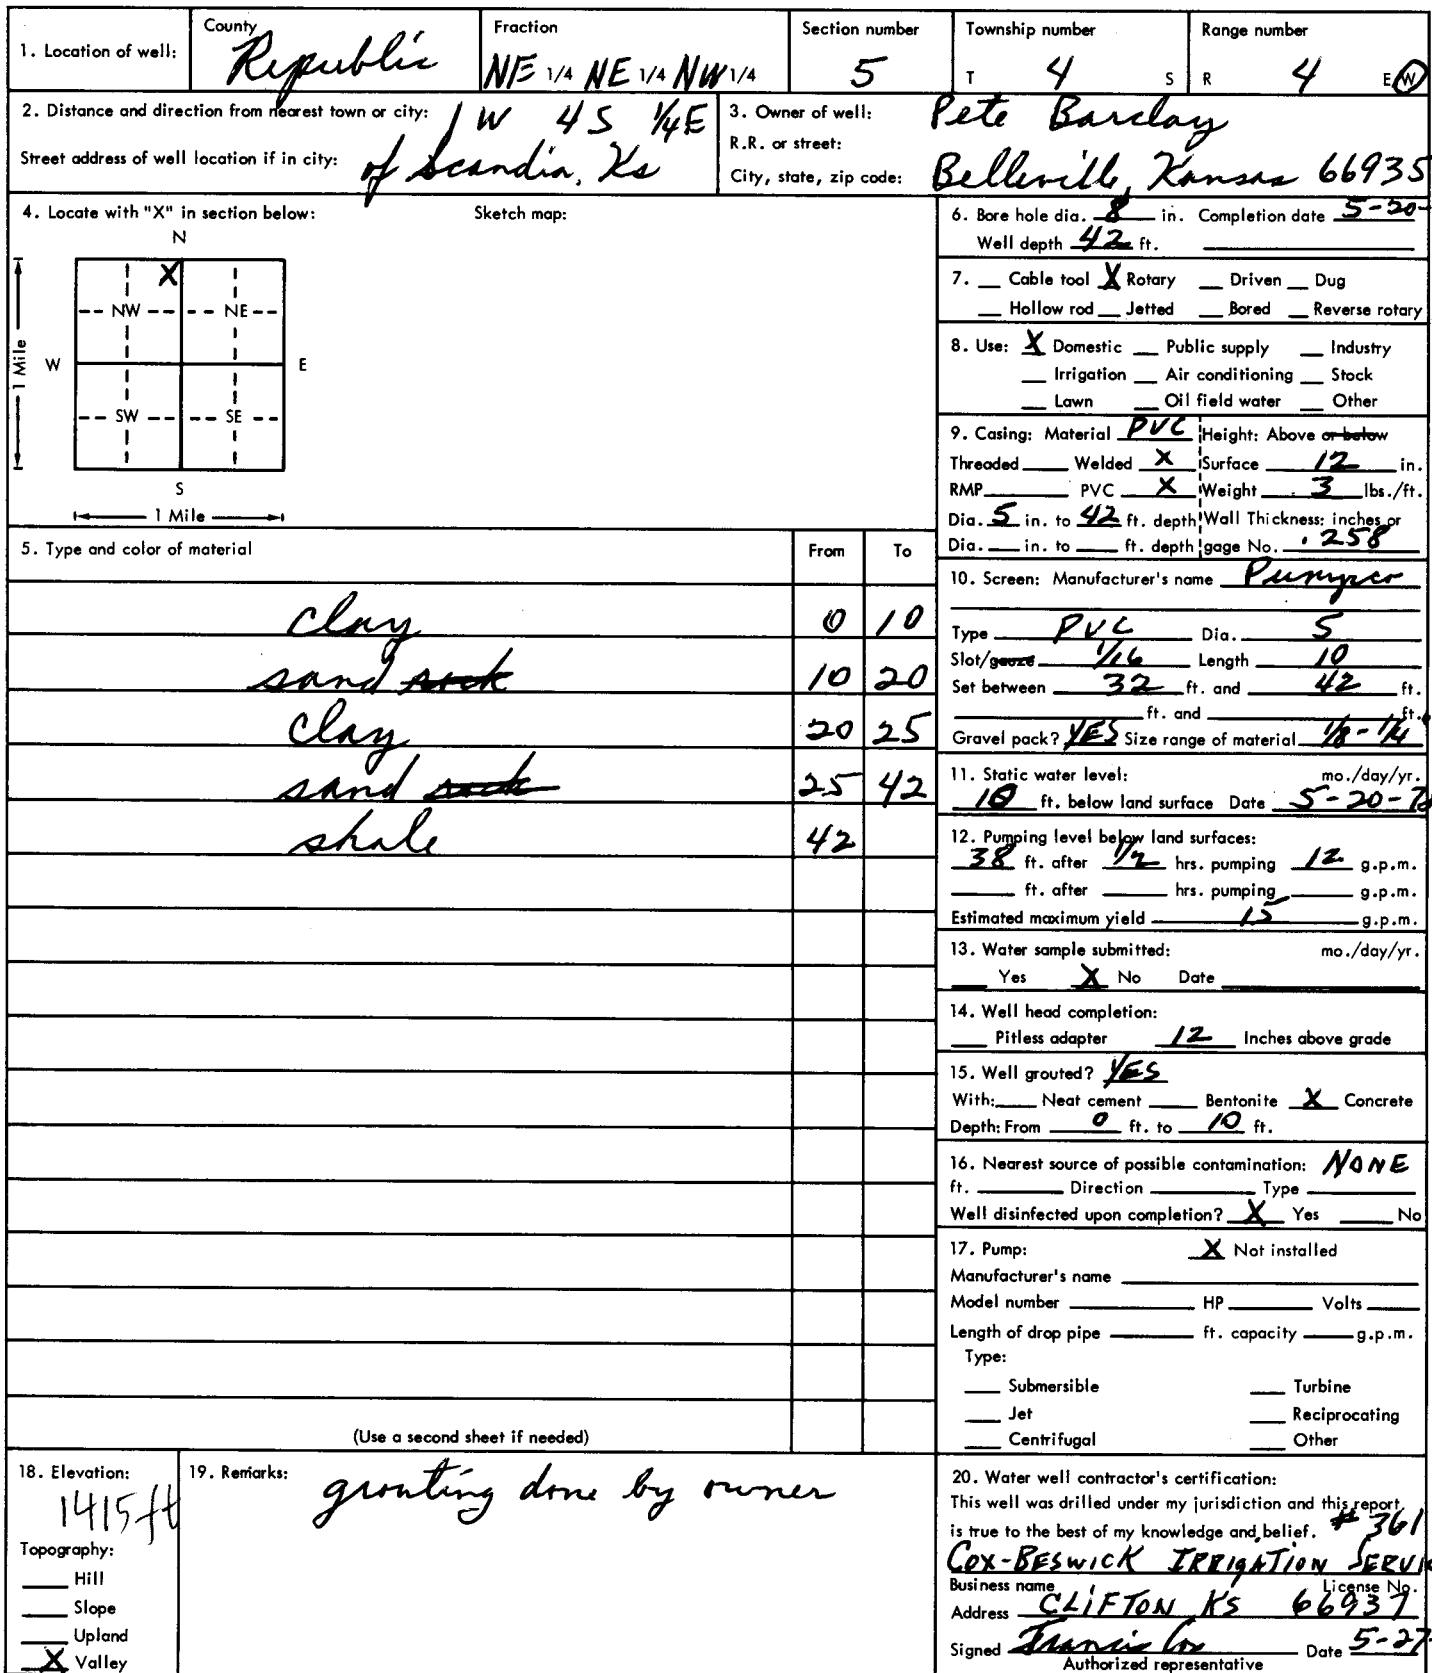 1. Location of well: County Republic Fraction NE 1/4 NE 1/4 NW 1/4 Section number 5 Township number T 4 S Range number R 4 E W
2. Distance and direction from nearest town or city: 1 W 4 S 1/4 E
Street address of well location if in city: of Scandia, Ks
3. Owner of well: Pete Barclay
R.R. or street:
City, state, zip code: Belleville, Kansas 66935
4. Locate with "X" in section below: Sketch map:
N
X
NW NE
W E
SW SE
S
1 Mile
1 Mile
5. Type and color of material From To
clay 0 10
sand rock 10 20
clay 20 25
sand rock 25 42
shale 42
(Use a second sheet if needed)
6. Bore hole dia. 8 in. Completion date 5-20-
Well depth 42 ft.
7. Cable tool X Rotary Driven Dug
Hollow rod Jetted Bored Reverse rotary
8. Use: X Domestic Public supply Industry
Irrigation Air conditioning Stock
Lawn Oil field water Other
9. Casing: Material PVC Height: Above or below
Threaded Welded X Surface 12 in.
RMP PVC X Weight . 3 lbs./ft.
Dia. 5 in. to 42 ft. depth Wall Thickness: inches or
Dia. in. to ft. depth gage No. .258
10. Screen: Manufacturer's name Pumpco
Type PVC Dia. 5
Slot/gauze 1/16 Length 10
Set between 32 ft. and 42 ft.
ft. and ft.
Gravel pack? YES Size range of material 1/8 - 1/4
11. Static water level: mo./day/yr.
10 ft. below land surface Date 5-20-7
12. Pumping level below land surfaces:
38 ft. after 1/2 hrs. pumping 12 g.p.m.
ft. after hrs. pumping g.p.m.
Estimated maximum yield 15 g.p.m.
13. Water sample submitted: mo./day/yr.
Yes X No Date
14. Well head completion:
Pitless adapter 12 Inches above grade
15. Well grouted? YES
With: Neat cement Bentonite X Concrete
Depth: From 0 ft. to 10 ft.
16. Nearest source of possible contamination: NONE
ft. Direction Type
Well disinfected upon completion? X Yes No
17. Pump: X Not installed
Manufacturer's name
Model number HP Volts
Length of drop pipe ft. capacity g.p.m.
Type:
Submersible Turbine
Jet Reciprocating
Centrifugal Other
18. Elevation:
1415 ft
Topography:
Hill
Slope
Upland
X Valley
19. Remarks: grouting done by owner
20. Water well contractor's certification:
This well was drilled under my jurisdiction and this report
is true to the best of my knowledge and belief. # 361
COX-BESWICK IRRIGATION SERVI
Business name License No.
Address CLIFTON KS 66937
Signed Francis Cox Date 5-27-
Authorized representative